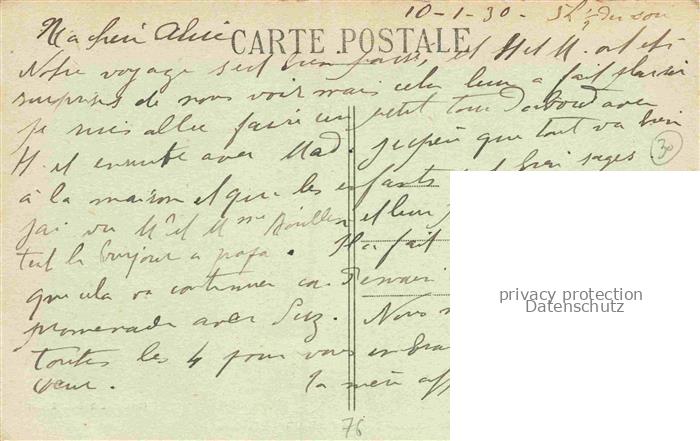 10-1-30. 5h 1/2 du soir
Ma chérie Alice
CARTE POSTALE
Notre voyage s'est bien passé, et M et M. ont été
surprises de nous voir mais cela leur a fait plaisir
je suis allée faire un petit tour d'abord avec
M. et ensuite avec Mad. j'espère que tout va bien
30
à la maison et que les enfants sont bien sages.
j'ai vu Mr et Mme et leur
tout le bonjour a papa. Il a fait
que cela va continuer ca. Demain
promenade avec Suz. Nous
toutes les 4 pour vous embra
coeur. la mère aff
76
privacy protection
Datenschutz